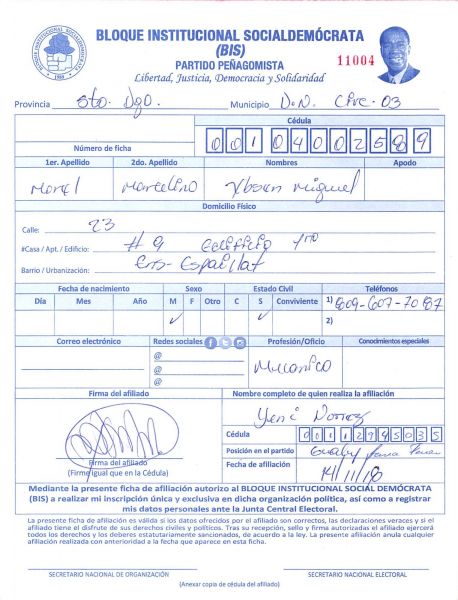 BLOQUE INSTITUCIONAL SOCIALDEMÓCRATA
(BIS)
PARTIDO PEÑAGOMISTA
11004
Libertad, Justicia, Democracia y Solidaridad
Provincia Sto. Dgo. Municipio D.N. Circ. 03
Cédula
Número de ficha 00104002589
1er. Apellido 2do. Apellido Nombres Apodo
Morel Marcelino Ybsan Miguel
Domicilio Físico
Calle: 23
#Casa / Apt. / Edificio: # 9 Edificio
Barrio / Urbanización: Ens. Espaillat
Fecha de nacimiento Sexo Estado Civil Teléfonos
Día Mes Año M F Otro C S Conviviente 1) 809-607-7087
✓ ✓ 2)
Correo electrónico Redes sociales Profesión/Oficio Conocimientos especiales
@ Mecanico
@
@
Firma del afiliado Nombre completo de quien realiza la afiliación
Yeni Nuñez
Cédula 00112995035
Posición en el partido
Firma del afiliado Fecha de afiliación 14/11/18
(Firme igual que en la Cédula)
Mediante la presente ficha de afiliación autorizo al BLOQUE INSTITUCIONAL SOCIAL DEMÓCRATA
(BIS) a realizar mi inscripción única y exclusiva en dicha organización política, así como a registrar
mis datos personales ante la Junta Central Electoral.
La presente ficha de afiliación es válida si los datos ofrecidos por el afiliado son correctos, las declaraciones veraces y si el
afiliado tiene el disfrute de sus derechos civiles y políticos. Tras su recepción, sello y firma autorizadas el afiliado ejercerá
todos los derechos y los deberes estatutariamente sancionados, de acuerdo a la ley. La presente afiliación anula cualquier
afiliación realizada con anterioridad a la fecha que aparece en esta ficha.
SECRETARIO NACIONAL DE ORGANIZACIÓN SECRETARIO NACIONAL ELECTORAL
(Anexar copia de cédula del afiliado)